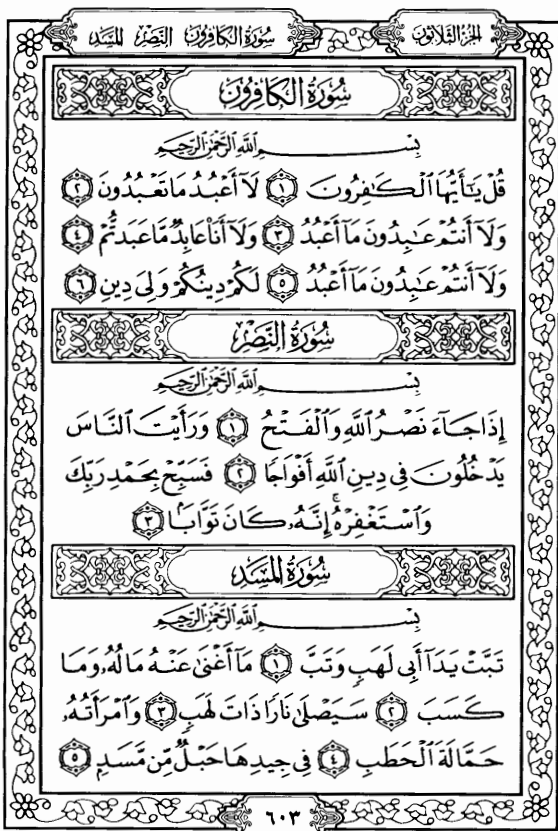 الجزء الثلاثون
سورة الكافرون النصر المسد
سُورَةُ الكَافِرُونَ
بِسْمِ اللَّهِ الرَّحْمَٰنِ الرَّحِيمِ
قُلْ يَٰٓأَيُّهَا ٱلْكَٰفِرُونَ ١ لَآ أَعْبُدُ مَا تَعْبُدُونَ ٢
وَلَآ أَنتُمْ عَٰبِدُونَ مَآ أَعْبُدُ ٣ وَلَآ أَنَا۠ عَابِدٌ مَّا عَبَدتُّمْ ٤
وَلَآ أَنتُمْ عَٰبِدُونَ مَآ أَعْبُدُ ٥ لَكُمْ دِينُكُمْ وَلِىَ دِينِ ٦
سُورَةُ النَّصْرِ
بِسْمِ اللَّهِ الرَّحْمَٰنِ الرَّحِيمِ
إِذَا جَآءَ نَصْرُ ٱللَّهِ وَٱلْفَتْحُ ١ وَرَأَيْتَ ٱلنَّاسَ
يَدْخُلُونَ فِى دِينِ ٱللَّهِ أَفْوَاجًا ٢ فَسَبِّحْ بِحَمْدِ رَبِّكَ
وَٱسْتَغْفِرْهُ ۚ إِنَّهُۥ كَانَ تَوَّابًۢا ٣
سُورَةُ المَسَد
بِسْمِ اللَّهِ الرَّحْمَٰنِ الرَّحِيمِ
تَبَّتْ يَدَآ أَبِى لَهَبٍ وَتَبَّ ١ مَآ أَغْنَىٰ عَنْهُ مَالُهُۥ وَمَا
كَسَبَ ٢ سَيَصْلَىٰ نَارًا ذَاتَ لَهَبٍ ٣ وَٱمْرَأَتُهُۥ
حَمَّالَةَ ٱلْحَطَبِ ٤ فِى جِيدِهَا حَبْلٌ مِّن مَّسَدٍۭ ٥
٦٠٣